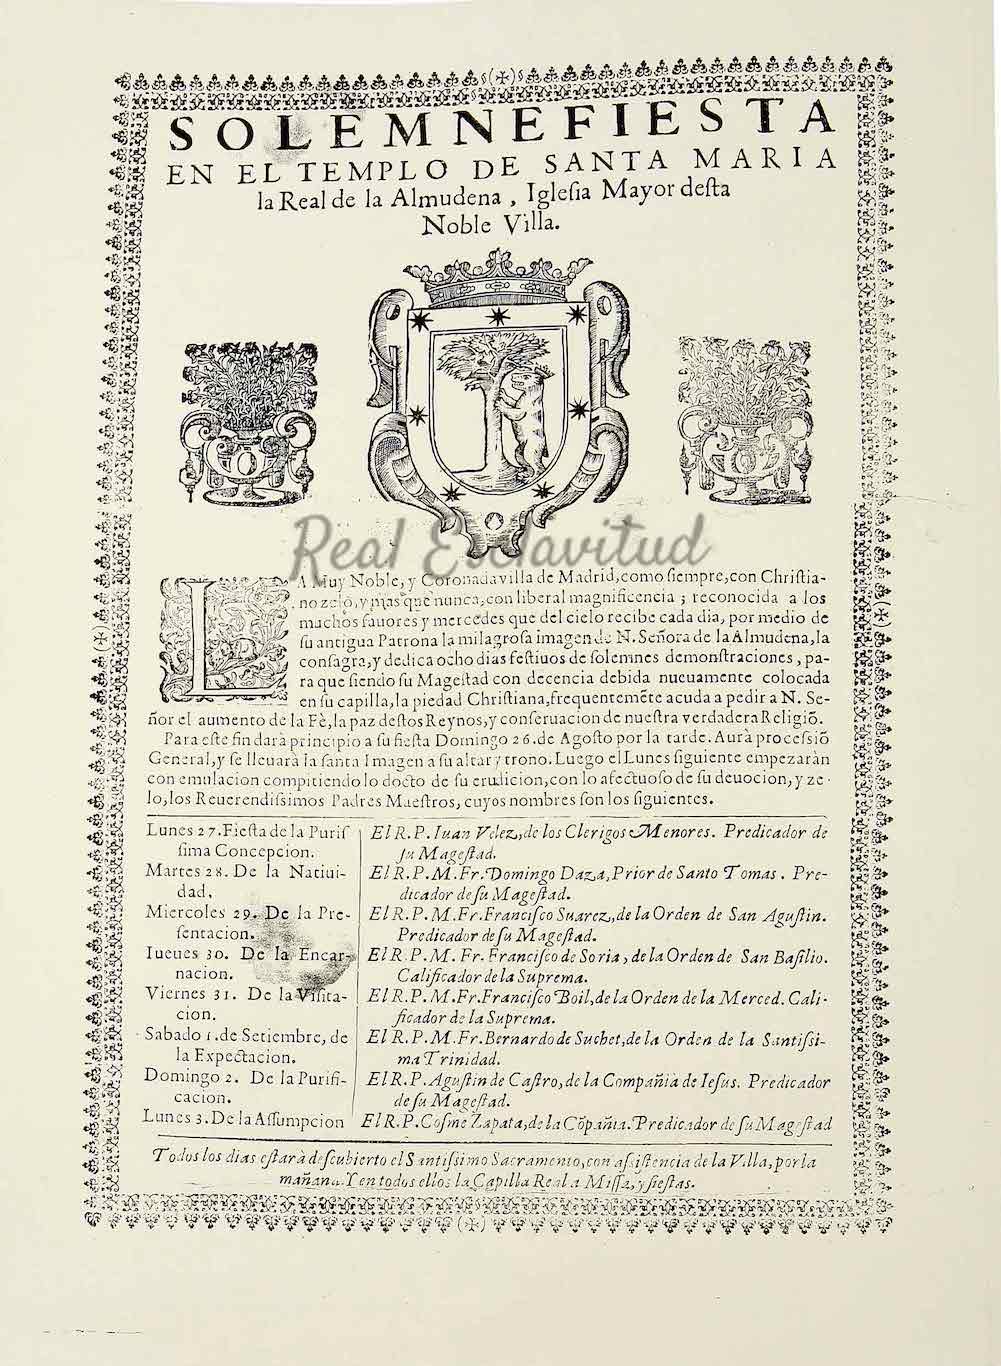 SOLEMNE FIESTA
EN EL TEMPLO DE SANTA MARIA
la Real de la Almudena, Iglesia Mayor desta
Noble Villa.
Real Esclavitud
LA Muy Noble, y Coronada villa de Madrid, como siempre, con Christia-
no zelo, y mas que nunca, con liberal magnificencia; reconocida a los
muchos fauores y mercedes que del cielo recibe cada dia, por medio de
su antigua Patrona la milagrosa imagen de N. Señora de la Almudena, la
consagra, y dedica ocho dias festiuos de solemnes demonstraciones, pa-
ra que siendo su Magestad con decencia debida nueuamente colocada
en su capilla, la piedad Christiana, frequentemẽte acuda a pedir a N. Se-
ñor el aumento de la Fè, la paz destos Reynos, y conseruacion de nuestra verdadera Religiõ.
Para este fin darà principio a su fiesta Domingo 26. de Agosto por la tarde. Aurà processiõ
General, y se lleuarà la santa Imagen a su altar y trono. Luego el Lunes siguiente empezaràn
con emulacion compitiendo lo docto de su erudicion, con lo afectuoso de su deuocion, y ze-
lo, los Reuerendissimos Padres Maestros, cuyos nombres son los siguientes.
Lunes 27. Fiesta de la Puris
sima Concepcion.
El R. P. Iuan Velez, de los Clerigos Menores. Predicador de
su Magestad.
Martes 28. De la Natiui-
dad.
El R. P. M. Fr. Domingo Daza, Prior de Santo Tomas. Pre-
dicador de su Magestad.
Miercoles 29. De la Pre-
sentacion.
El R. P. M. Fr. Francisco Suarez, de la Orden de San Agustin.
Predicador de su Magestad.
Iueues 30. De la Encar-
nacion.
El R. P. M. Fr. Francisco de Soria, de la Orden de San Basilio.
Calificador de la Suprema.
Viernes 31. De la Visita-
cion.
El R. P. M. Fr. Francisco Boil, de la Orden de la Merced. Cali-
ficador de la Suprema.
Sabado 1. de Setiembre, de
la Expectacion.
El R. P. M. Fr. Bernardo de Suchet, de la Orden de la Santissi-
ma Trinidad.
Domingo 2. De la Purifi-
cacion.
El R. P. Agustin de Castro, de la Compañia de Iesus. Predicador
de su Magestad.
Lunes 3. De la Assumpcion
El R. P. Cosme Zapata, de la Cõpañia. Predicador de su Magestad
Todos los dias estarà descubierto el Santissimo Sacramento, con assistencia de la Villa, por la
mañana. Y en todos ellos la Capilla Real a Missa, y siestas.